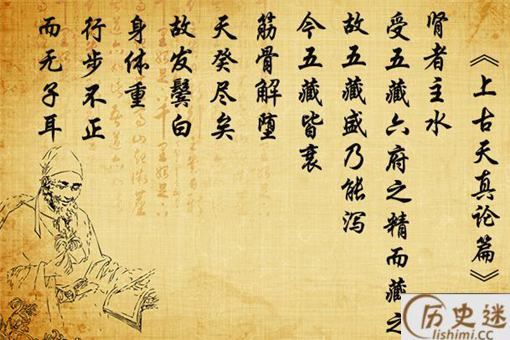 《上古天真论篇》
肾者主水
受五藏六府之精而藏之
故五藏盛乃能泻
今五藏皆衰
筋骨解堕
天癸尽矣
故发鬓白
身体重
行步不正
而无子耳
历史迷
lishimi.cc